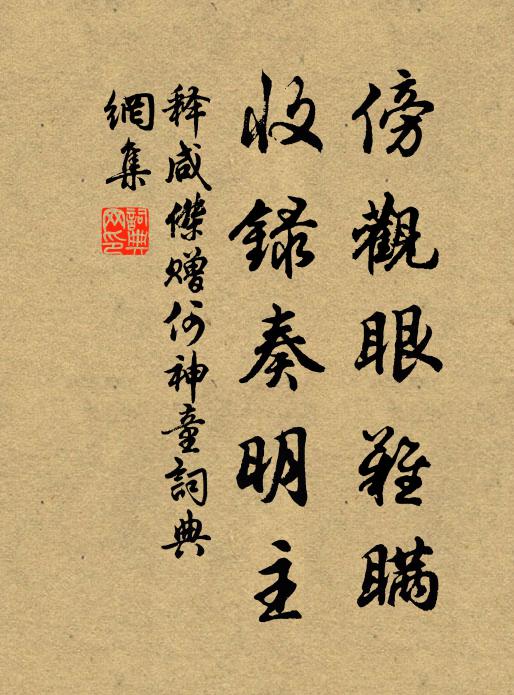 傍觀眼難瞞
收録奏明主
释咸傑贈何神童詞典
網集
詞典
网印